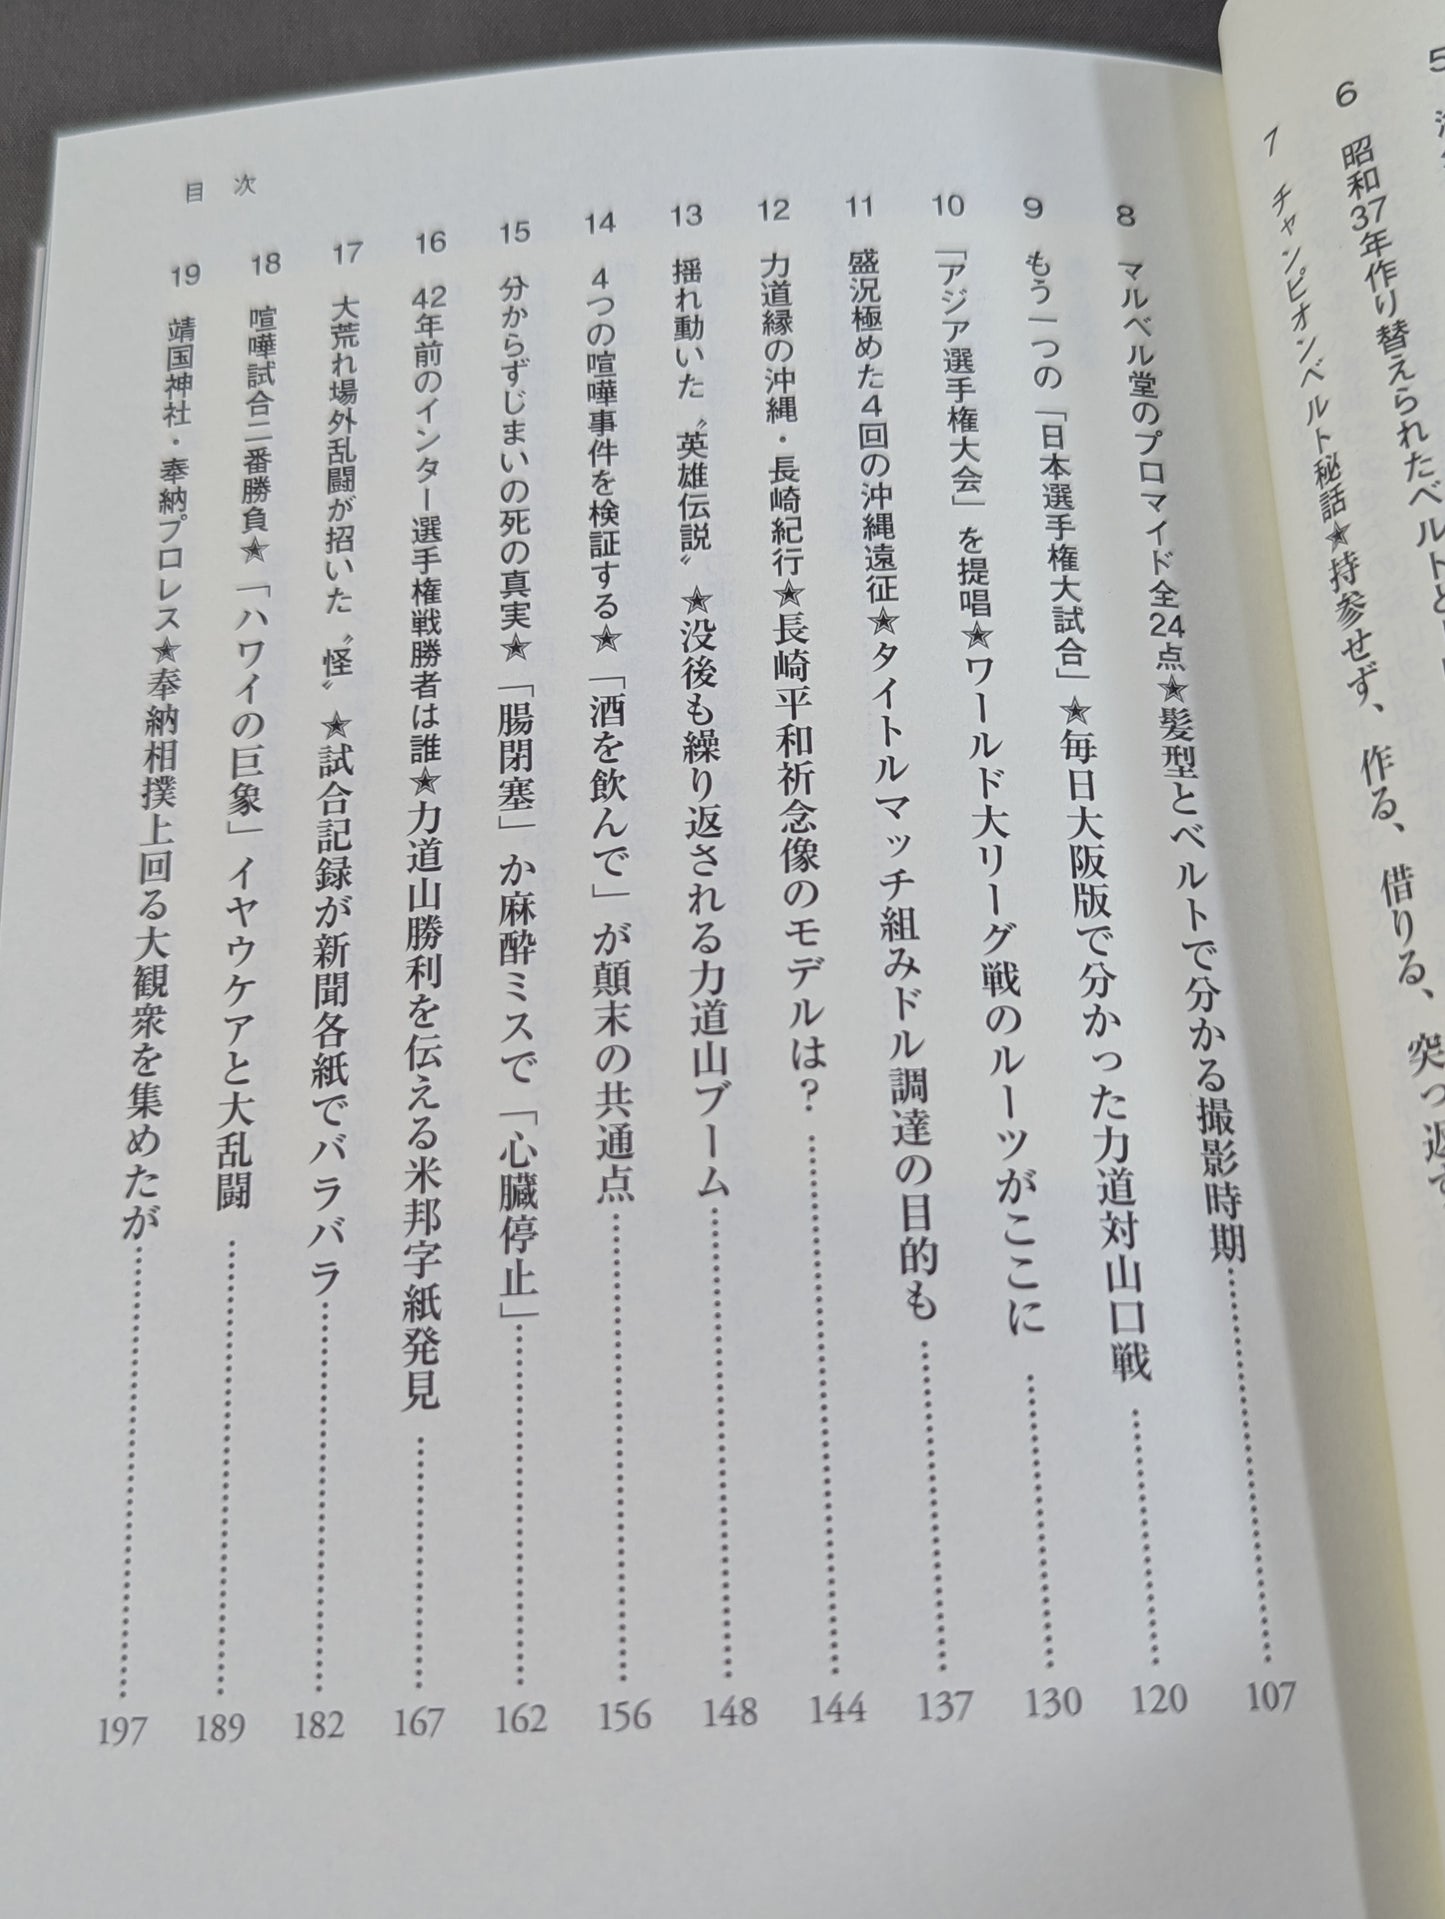 6 昭和37年作り替えられたベルトと
7 チャンピオンベルト秘話★持参せず、作る、借りる、突っ返す
8 マルベル堂のプロマイド全24点★髪型とベルトで分かる撮影時期……107
9 もう一つの「日本選手権大試合」★毎日大阪版で分かった力道対山口戦……120
10 「アジア選手権大会」を提唱★ワールド大リーグ戦のルーツがここに……130
11 盛況極めた4回の沖縄遠征★タイトルマッチ組みドル調達の目的も……137
12 力道縁の沖縄・長崎紀行★長崎平和祈念像のモデルは?……144
13 揺れ動いた〝英雄伝説〟★没後も繰り返される力道山ブーム……148
14 4つの喧嘩事件を検証する★「酒を飲んで」が顛末の共通点……156
15 分からずじまいの死の真実★「腸閉塞」か麻酔ミスで「心臓停止」……162
16 42年前のインター選手権戦勝者は誰★力道山勝利を伝える米邦字紙発見……167
17 大荒れ場外乱闘が招いた〝怪〟★試合記録が新聞各紙でバラバラ……182
18 喧嘩試合二番勝負★「ハワイの巨象」イヤウケアと大乱闘……189
19 靖国神社・奉納プロレス★奉納相撲上回る大観衆を集めたが……197
目次